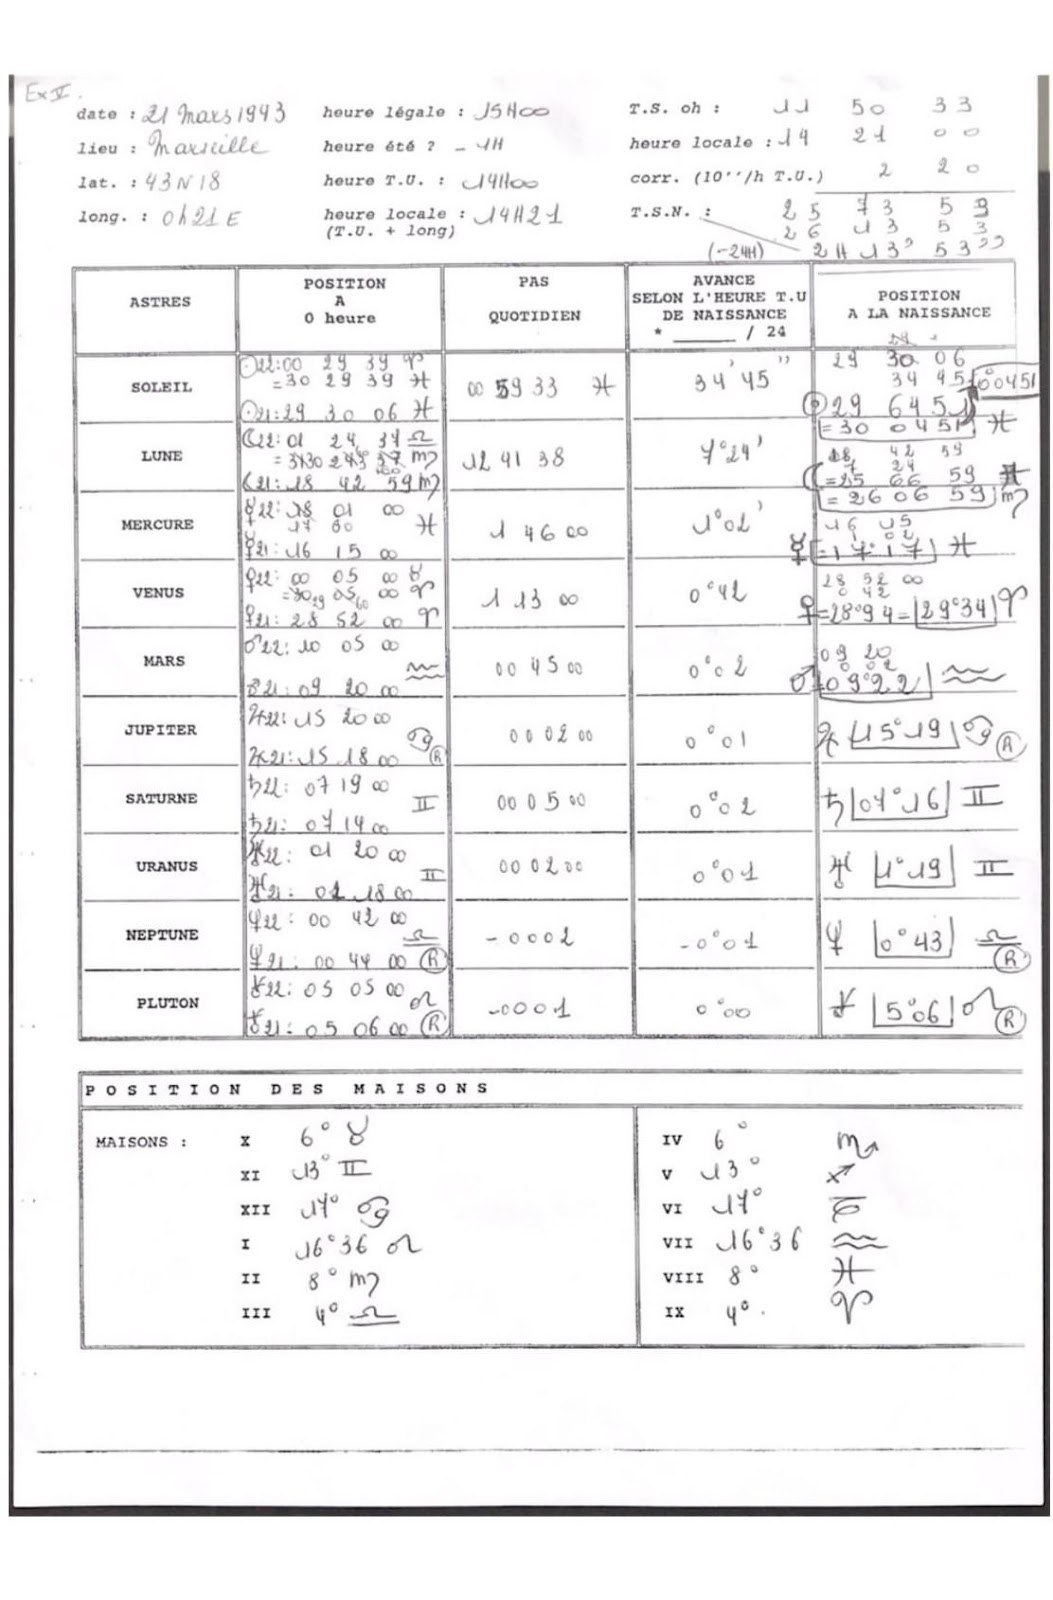 Ex V.
date : 21 Mars 1943 heure légale : 15H00 T.S. 0h : 11 50 33
lieu : Marseille heure été ? - 1H heure locale : 14 21 00
lat. : 43 N 18 heure T.U. : 14H00 corr. (10''/h T.U.) 2 20
long. : 0h21 E heure locale : 14H21 T.S.N. : 25 73 53
(T.U. + long) 26 13 53
(-24H) 2H 13' 53''
ASTRES POSITION A 0 heure PAS QUOTIDIEN AVANCE SELON L'HEURE T.U DE NAISSANCE * ______ / 24 POSITION A LA NAISSANCE
☉22:00 29 39 ♈ 29 30 06
SOLEIL =30 29 39 ♓ 00 59 33 ♓ 34' 45'' 34 45 0°0451
☉21:29 30 06 ♓ ☉ 29 64 51
= 30 04 51 ♓
☾22:01 24 37 ♎ 18 42 59
LUNE 12 41 38 7°24' 7 24
☾21:18 42 59 ♍ ☾=25 66 59
= 26 06 59 ♍
☿22:18 01 00 16 15
MERCURE 17 60 ♓ 1 46 00 1°02' 1 02
☿21:16 15 00 ☿ =17°17 ♓
♀22: 00 05 00 ♉ 28 52 00
VENUS =30 05 00 ♈ 1 13 00 0°42 0 42
29 60
♀21: 28 52 00 ♈ ♀=28°94=29°34 ♈
♂22: 10 05 00 09 20
MARS ♒ 00 45 00 0°02 0 02
♂21: 09 20 00 ♂ 09°22 ♒
♃22: 15 20 00
JUPITER ♋ 00 02 00 0°01 ♃ 15°19 ♋ (R)
♃21: 15 18 00 (R)
♄22: 07 19 00
SATURNE ♊ 00 05 00 0°02 ♄ 07°16 ♊
♄21: 07 14 00
♅22: 01 20 00
URANUS ♊ 00 02 00 0°01 ♅ 1°19 ♊
♅21: 01 18 00
♆22: 00 42 00
NEPTUNE ♎ - 0002 -0°01 ♆ 0°43 ♎ (R)
♆21: 00 44 00 (R)
22: 05 05 00
PLUTON ♌ -0001 0°00 5°06 ♌ (R)
21: 05 06 00 (R)
POSITION DES MAISONS
MAISONS : X 6° ♉ IV 6° ♏
XI 13° ♊ V 13° ♐
XII 17° ♋ VI 17° ♑
I 16°36 ♌ VII 16°36 ♒
II 8° ♍ VIII 8° ♓
III 4° ♎ IX 4° ♈